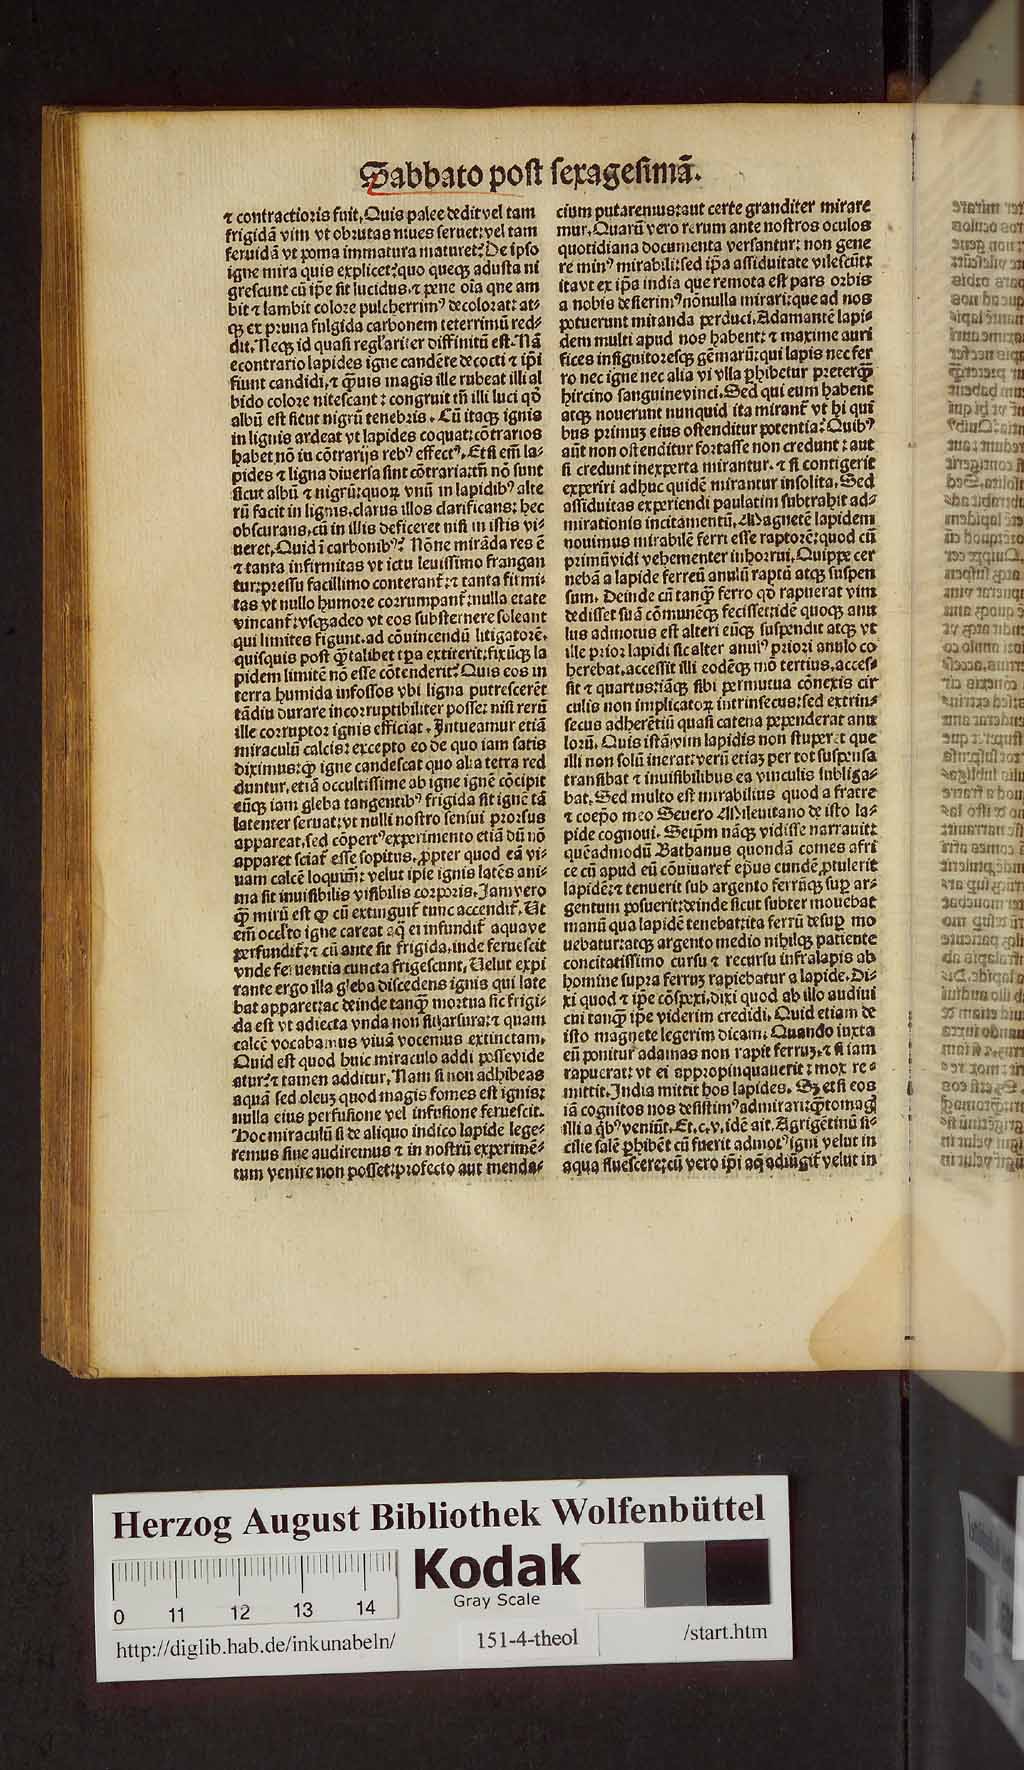 Sabbato post sexagesimã.
⁊ contractioris fuit. Quis palee dedit vel tam
frigidã vim vt obrutas niues seruet: vel tam
feruidã vt poma immatura maturet? De ipso
igne mira quis explicet? quo queq̃ adusta ni
grescunt cũ ip̃e sit lucidus. ⁊ pene oĩa que am
bit ⁊ lambit colore pulcherrimꝰ decolorat: at-
q̃ ex pruna fulgida carbonem teterrimũ red-
dit. Neq̃ id quasi regl'ariter diffinitũ est. Nã
econtrario lapides igne candẽte decocti ⁊ ip̃i
fiunt candidi. ⁊ q̃uis magis ille rubeat illi al
bido colore nitescant: congruit tñ illi luci qð
albũ est sicut nigrũ tenebris. Cũ itaq̃ ignis
in lignis ardeat vt lapides coquat: cõtrarios
habet nõ in cõtrarijs rebꝰ effectꝰ. Etsi em̃ la-
pides ⁊ ligna diuersa sint cõtraria: tñ nõ sunt
sicut albũ ⁊ nigrũ: quoꝝ vnũ in lapidibꝰ alte
rũ facit in lignis. clarus illos clarificans: hec
obscurans. cũ in illis deficeret nisi in istis vi-
ueret. Quid ĩ carbonibꝰ? Nõne mirãda res ẽ
⁊ tanta infirmitas vt ictu leuissimo frangan
tur: pressu facillimo conterant̃: ⁊ tanta firmi-
tas vt nullo humore corrumpant̃: nulla etate
vincant̃: vsq̃adeo vt eos substernere soleant
qui limites figunt. ad cõuincendũ litigatorẽ.
quisquis post q̃talibet tp̃a extiterit: fixũq̃ la
pidem limitẽ nõ esse cõtenderit? Quis eos in
terra humida infossos vbi ligna putrescerẽt
tãdiu durare incorruptibiliter posse: nisi rerũ
ille corruptor ignis efficiat. Intueamur etiã
miraculũ calcis: excepto eo de quo iam satis
diximus: q̃ igne candescat quo alia tetra red
duntur. etiã occultissime ab igne ignẽ cõcipit
eũq̃ iam gleba tangentibꝰ frigida sit ignẽ tã
latenter seruat: vt nulli nostro sensui prorsus
appareat. sed cõpertꝰ experimento etiã dũ nõ
apparet sciat̃ esse sopitus. ꝓpter quod eã vi-
uam calcẽ loquim̃: velut ip̃e ignis latẽs ani-
ma sit inuisibilis visibilis corporis. Jam vero
q̃ mirũ est q̃ cũ extinguit̃ tunc accendit̃. Ut
em̃ occl'to igne careat aq̃ ei infundit̃ aquave
perfundit̃: ⁊ cũ ante sit frigida. inde feruescit
vnde feruentia cuncta frigescunt. Velut expi
rante ergo illa gleba discedens ignis qui late
bat apparet: ac deinde tanq̃ mortua sic frigi-
da est vt adiecta vnda non sit arsura: ⁊ quam
calcẽ vocabamus viuã vocemus extinctam.
Quid est quod huic miraculo addi posse vide
atur? ⁊ tamen additur. Nam si non adhibeas
aquã sed oleuꝫ quod magis fomes est ignis:
nulla eius perfusione vel infusione feruescit.
Hoc miraculũ si de aliquo indico lapide lege-
remus siue audiremus ⁊ in nostrũ experimẽ-
tum venire non posset: profecto aut menda-
cium putaremus: aut certe granditer mirare
mur. Quarũ vero rerum ante nostros oculos
quotidiana documenta versantur: non gene
re minꝰ mirabili: sed ip̃a assiduitate vilescũt:
ita vt ex ip̃a india que remota est pars orbis
a nobis desierimꝰ nõnulla mirari: que ad nos
potuerunt miranda perduci. Adamantẽ lapi-
dem multi apud nos habent: ⁊ maxime auri
fices insignitoresq̃ gẽmarũ: qui lapis nec fer
ro nec igne nec alia vi vlla ꝑhibetur preterq̃
hircino sanguine vinci. Sed qui eum habent
atq̃ nouerunt nunquid ita mirant̃ vt hi qui
bus primuꝫ eius ostenditur potentia? Quibꝰ
aũt non ostenditur fortasse non credunt: aut
si credunt inexperta mirantur. ⁊ si contigerit
experiri adhuc quidẽ mirantur insolita. Sed
assiduitas experiendi paulatim subtrahit ad-
mirationis incitamentũ. Magnetẽ lapidem
nouimus mirabilẽ ferri esse raptorẽ: quod cũ
primũ vidi vehementer inhorrui. Quippe cer
nebã a lapide ferreũ anulũ raptũ atq̃ suspen
sum. Deinde cũ tanq̃ ferro qð rapuerat vim
dedisset suã cõmunẽq̃ fecisset: idẽ quoq̃ anu
lus admotus est alteri eũq̃ suspendit atq̃ vt
ille prior lapidi sic alter anulꝰ priori anulo co
herebat. accessit illi eodẽq̃ mõ tertius. acces-
sit ⁊ quartus: iãq̃ sibi per mutua cõnexis cir
culis non implicatoꝝ intrinsecus: sed extrin-
secus adherẽtiũ quasi catena pependerat anu
lorũ. Quis istã vim lapidis non stuperet que
illi non solũ inerat: verũ etiaꝫ per tot suspensa
transibat ⁊ inuisibilibus ea vinculis subliga-
bat. Sed multo est mirabilius quod a fratre
⁊ coep̃o meo Seuero Mileuitano de isto la-
pide cognoui. Seip̃m nãq̃ vidisse narrauit:
quẽadmodũ Bathanus quondã comes afri
ce cũ apud eũ cõuiuaret̃ ep̃us eundẽ ꝓtulerit
lapidẽ: ⁊ tenuerit sub argento ferrũq̃ suꝑ ar-
gentum posuerit: deinde sicut subter mouebat
manũ qua lapidẽ tenebat: ita ferrũ desuꝑ mo
uebatur: atq̃ argento medio nihilq̃ patiente
concitatissimo cursu ⁊ recursu infra lapis ab
homine supra ferruꝫ rapiebatur a lapide. Di-
xi quod ⁊ ip̃e cõspexi. dixi quod ab illo audiui
cui tanq̃ ip̃e viderim credidi. Quid etiam de
isto magnete legerim dicam. Quando iuxta
eũ ponitur adamas non rapit ferruꝫ. ⁊ si iam
rapuerat: vt ei appropinquauerit: mox re-
mittit. India mittit hos lapides. Sꝫ etsi eos
iã cognitos nos desistimꝰ admirari: q̃tomag̃
illi a q̃bꝰ veniũt. Et. c. v. idẽ ait. Agrigẽtinũ si-
cilie salẽ ꝑhibẽt cũ fuerit admotꝰ igni velut in
aqua fluescere: cũ vero ip̃i aq̃ adiũgit̃ velut in
Herzog August Bibliothek Wolfenbüttel
Kodak
Gray Scale
0 11 12 13 14
http://diglib.hab.de/inkunabeln/ 151-4-theol /start.htm